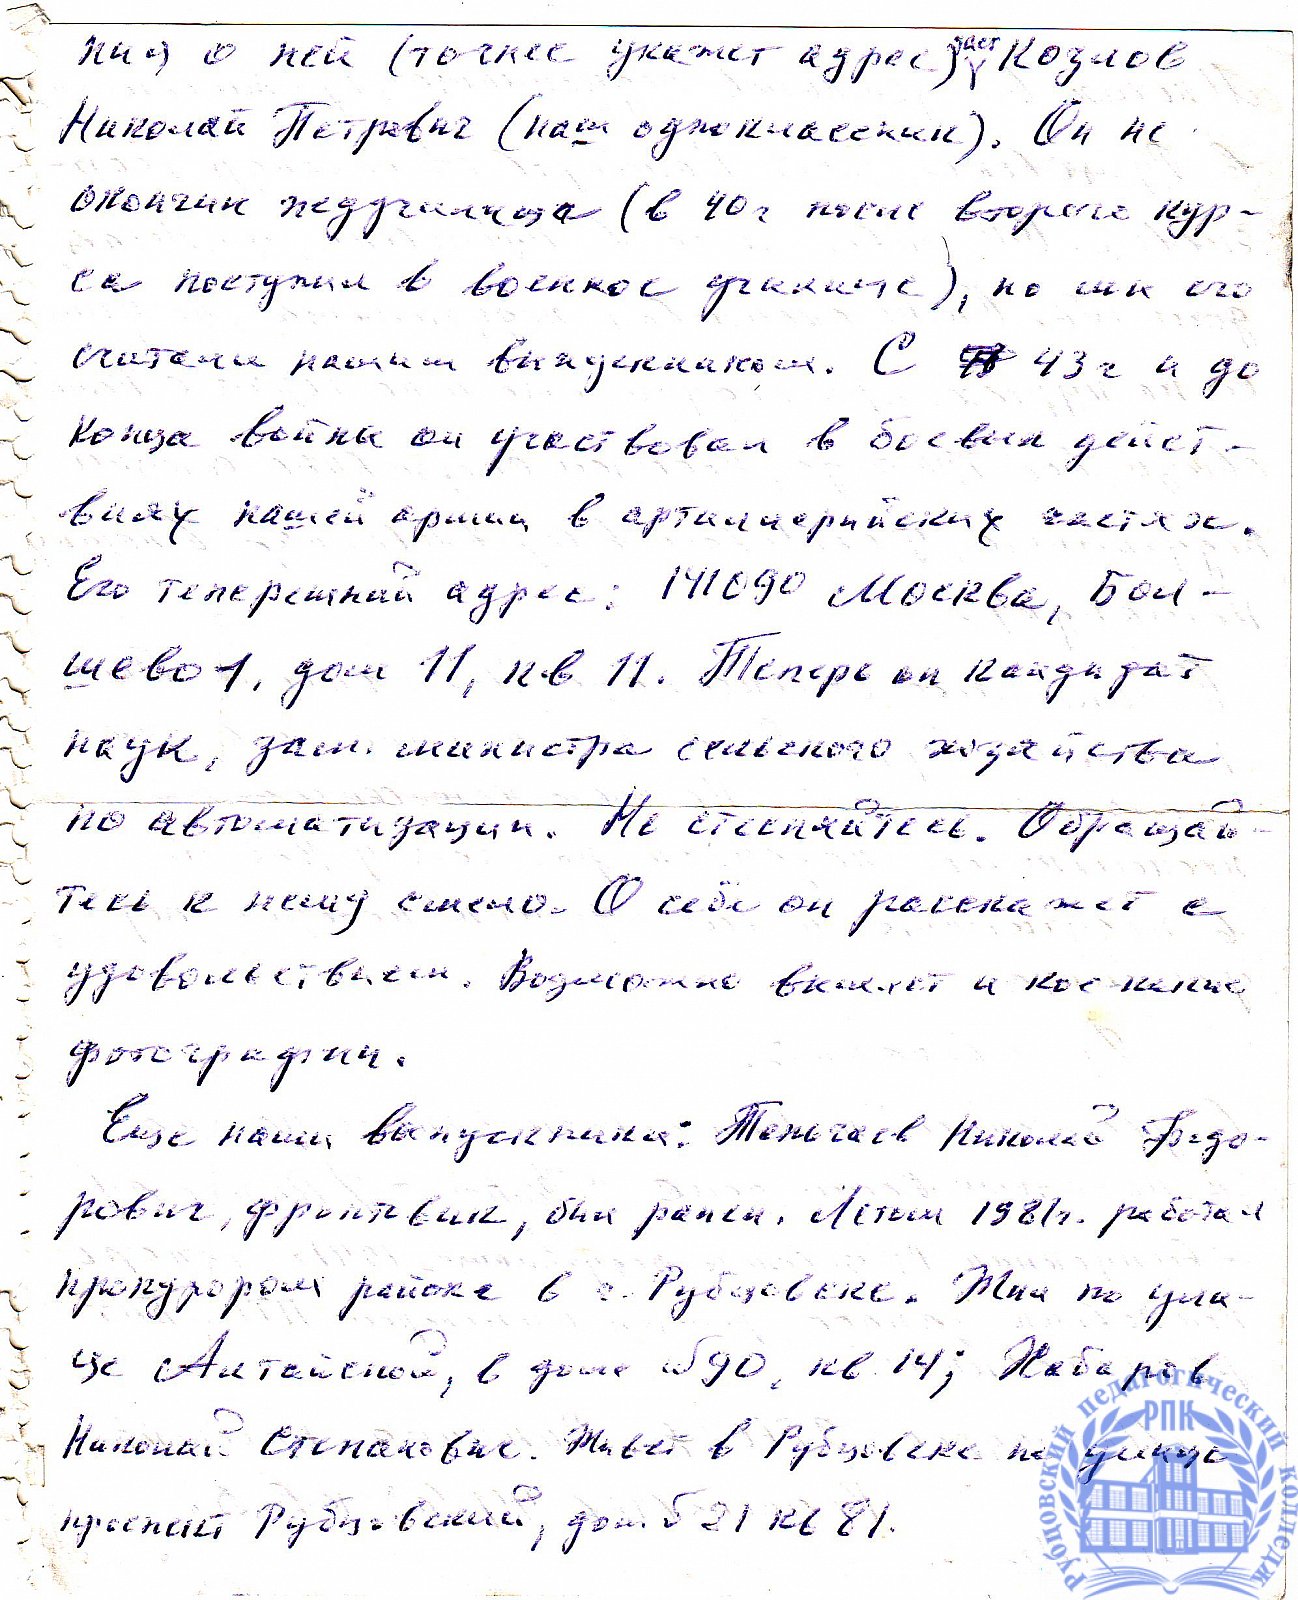 ния о ней (точнее укажет адрес) даст Козлов
Николай Петрович (наш одноклассник). Он не
окончил педучилища (в 40 г после второго кур-
са поступил в военное училище), но мы его
считаем нашим выпускником. С 43 г и до
конца войны он участвовал в боевых дейст-
виях нашей армии в артиллерийских частях.
Его теперешний адрес: 141090 Москва, Бол-
шево-1, дом 11, кв 11. Теперь он кандидат
наук, зам. министра сельского хозяйства
по автоматизации. Не стесняйтесь. Обращай-
тесь к нему смело. О себе он расскажет с
удовольствием. Возможно вышлет и кое-какие
фотографии.
Еще наши выпускники: Теньгаев Николай Федо-
рович, фронтвик, был ранен. Летом 1981г. работал
прокурором района в г. Рубцовске. Жил по ули-
це Алтайской, в доме №90, кв 14; Хабаров
Николай Степанович. Живет в Рубцовске по улице
проспект Рубцовский, дом 21 кв 81.
Рубцовский педагогический колледж
РПК